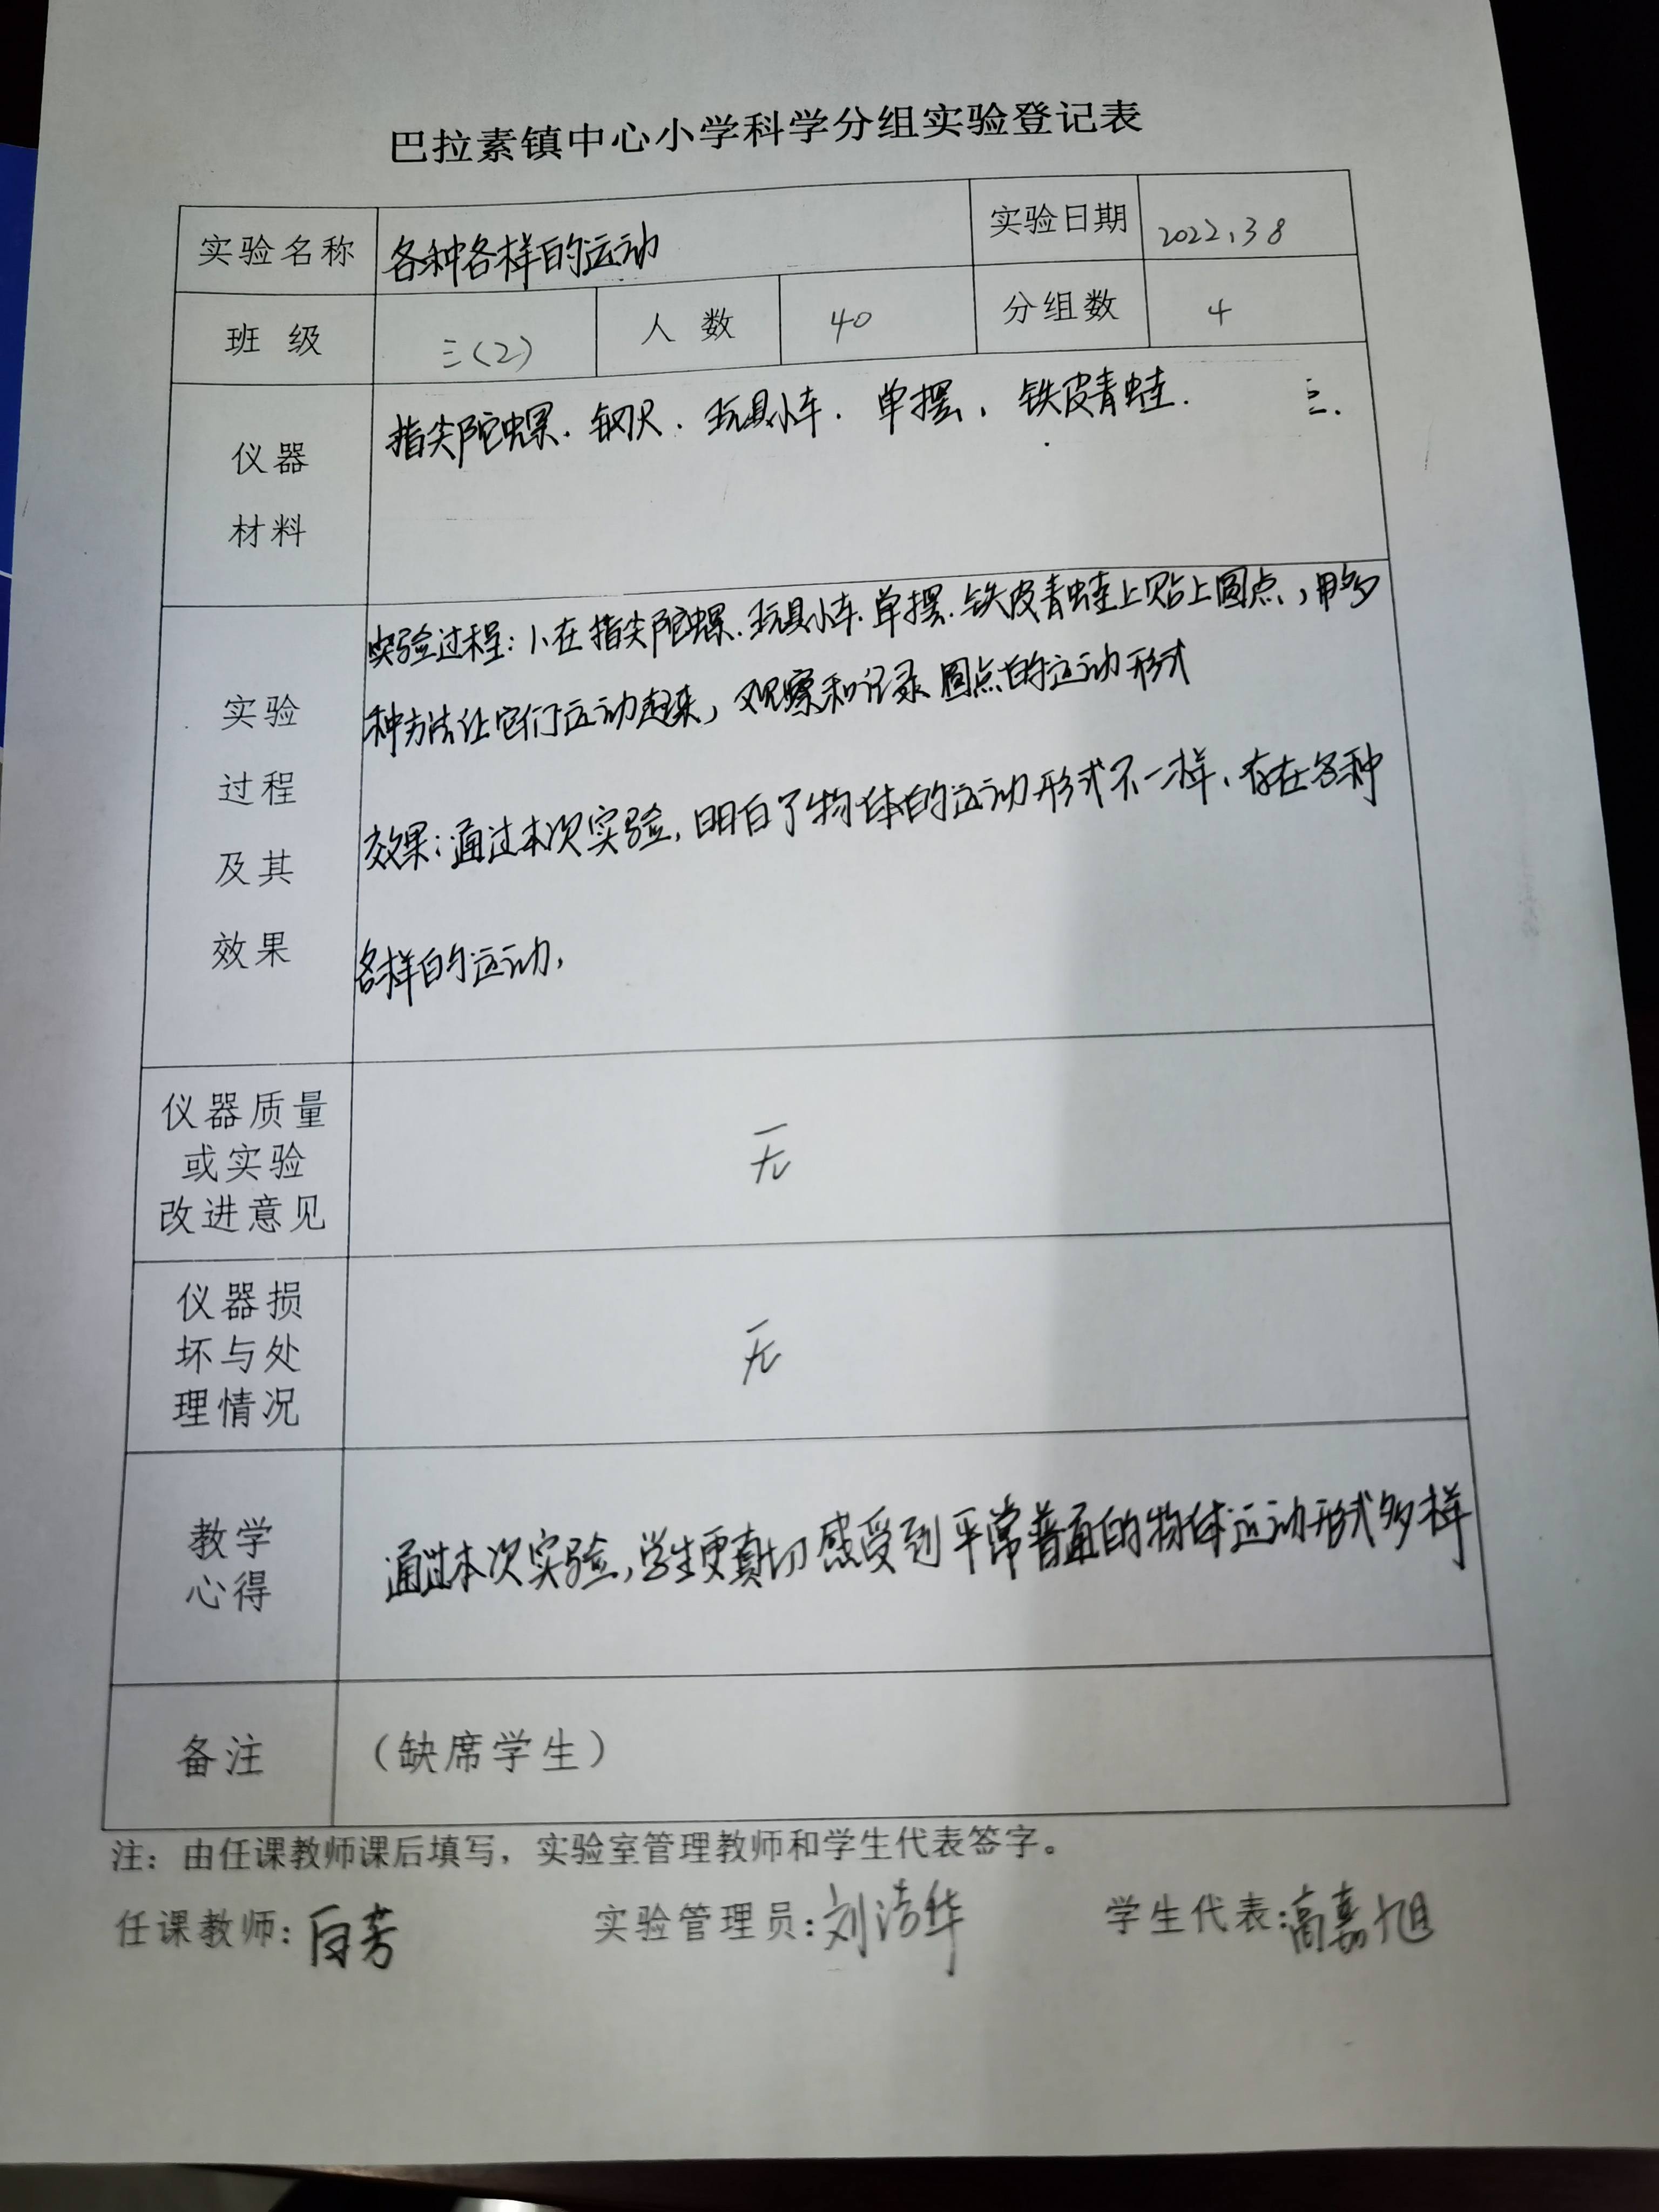 巴拉素镇中心小学科学分组实验登记表
实验名称 各种各样的运动 实验日期 2022、3 8
班 级 三(2) 人 数 40 分组数 4
仪器
材料
指尖陀螺、钢尺、玩具小车、单摆、铁皮青蛙. 三.
实验
过程
及其
效果
实验过程:1、在指尖陀螺.玩具小车.单摆.铁皮青蛙上贴上圆点,用多
种方法让它们运动起来,观察和记录圆点的运动形式
效果:通过本次实验,明白了物体的运动形式不一样、存在各种
各样的运动,
仪器质量
或实验
改进意见
无
仪器损
坏与处
理情况
无
教学
心得
通过本次实验,学生更真切感受到平常普通的物体运动形式多样
备注 (缺席学生)
注:由任课教师课后填写,实验室管理教师和学生代表签字。
任课教师:白芳 实验管理员:刘洁华 学生代表:高嘉旭